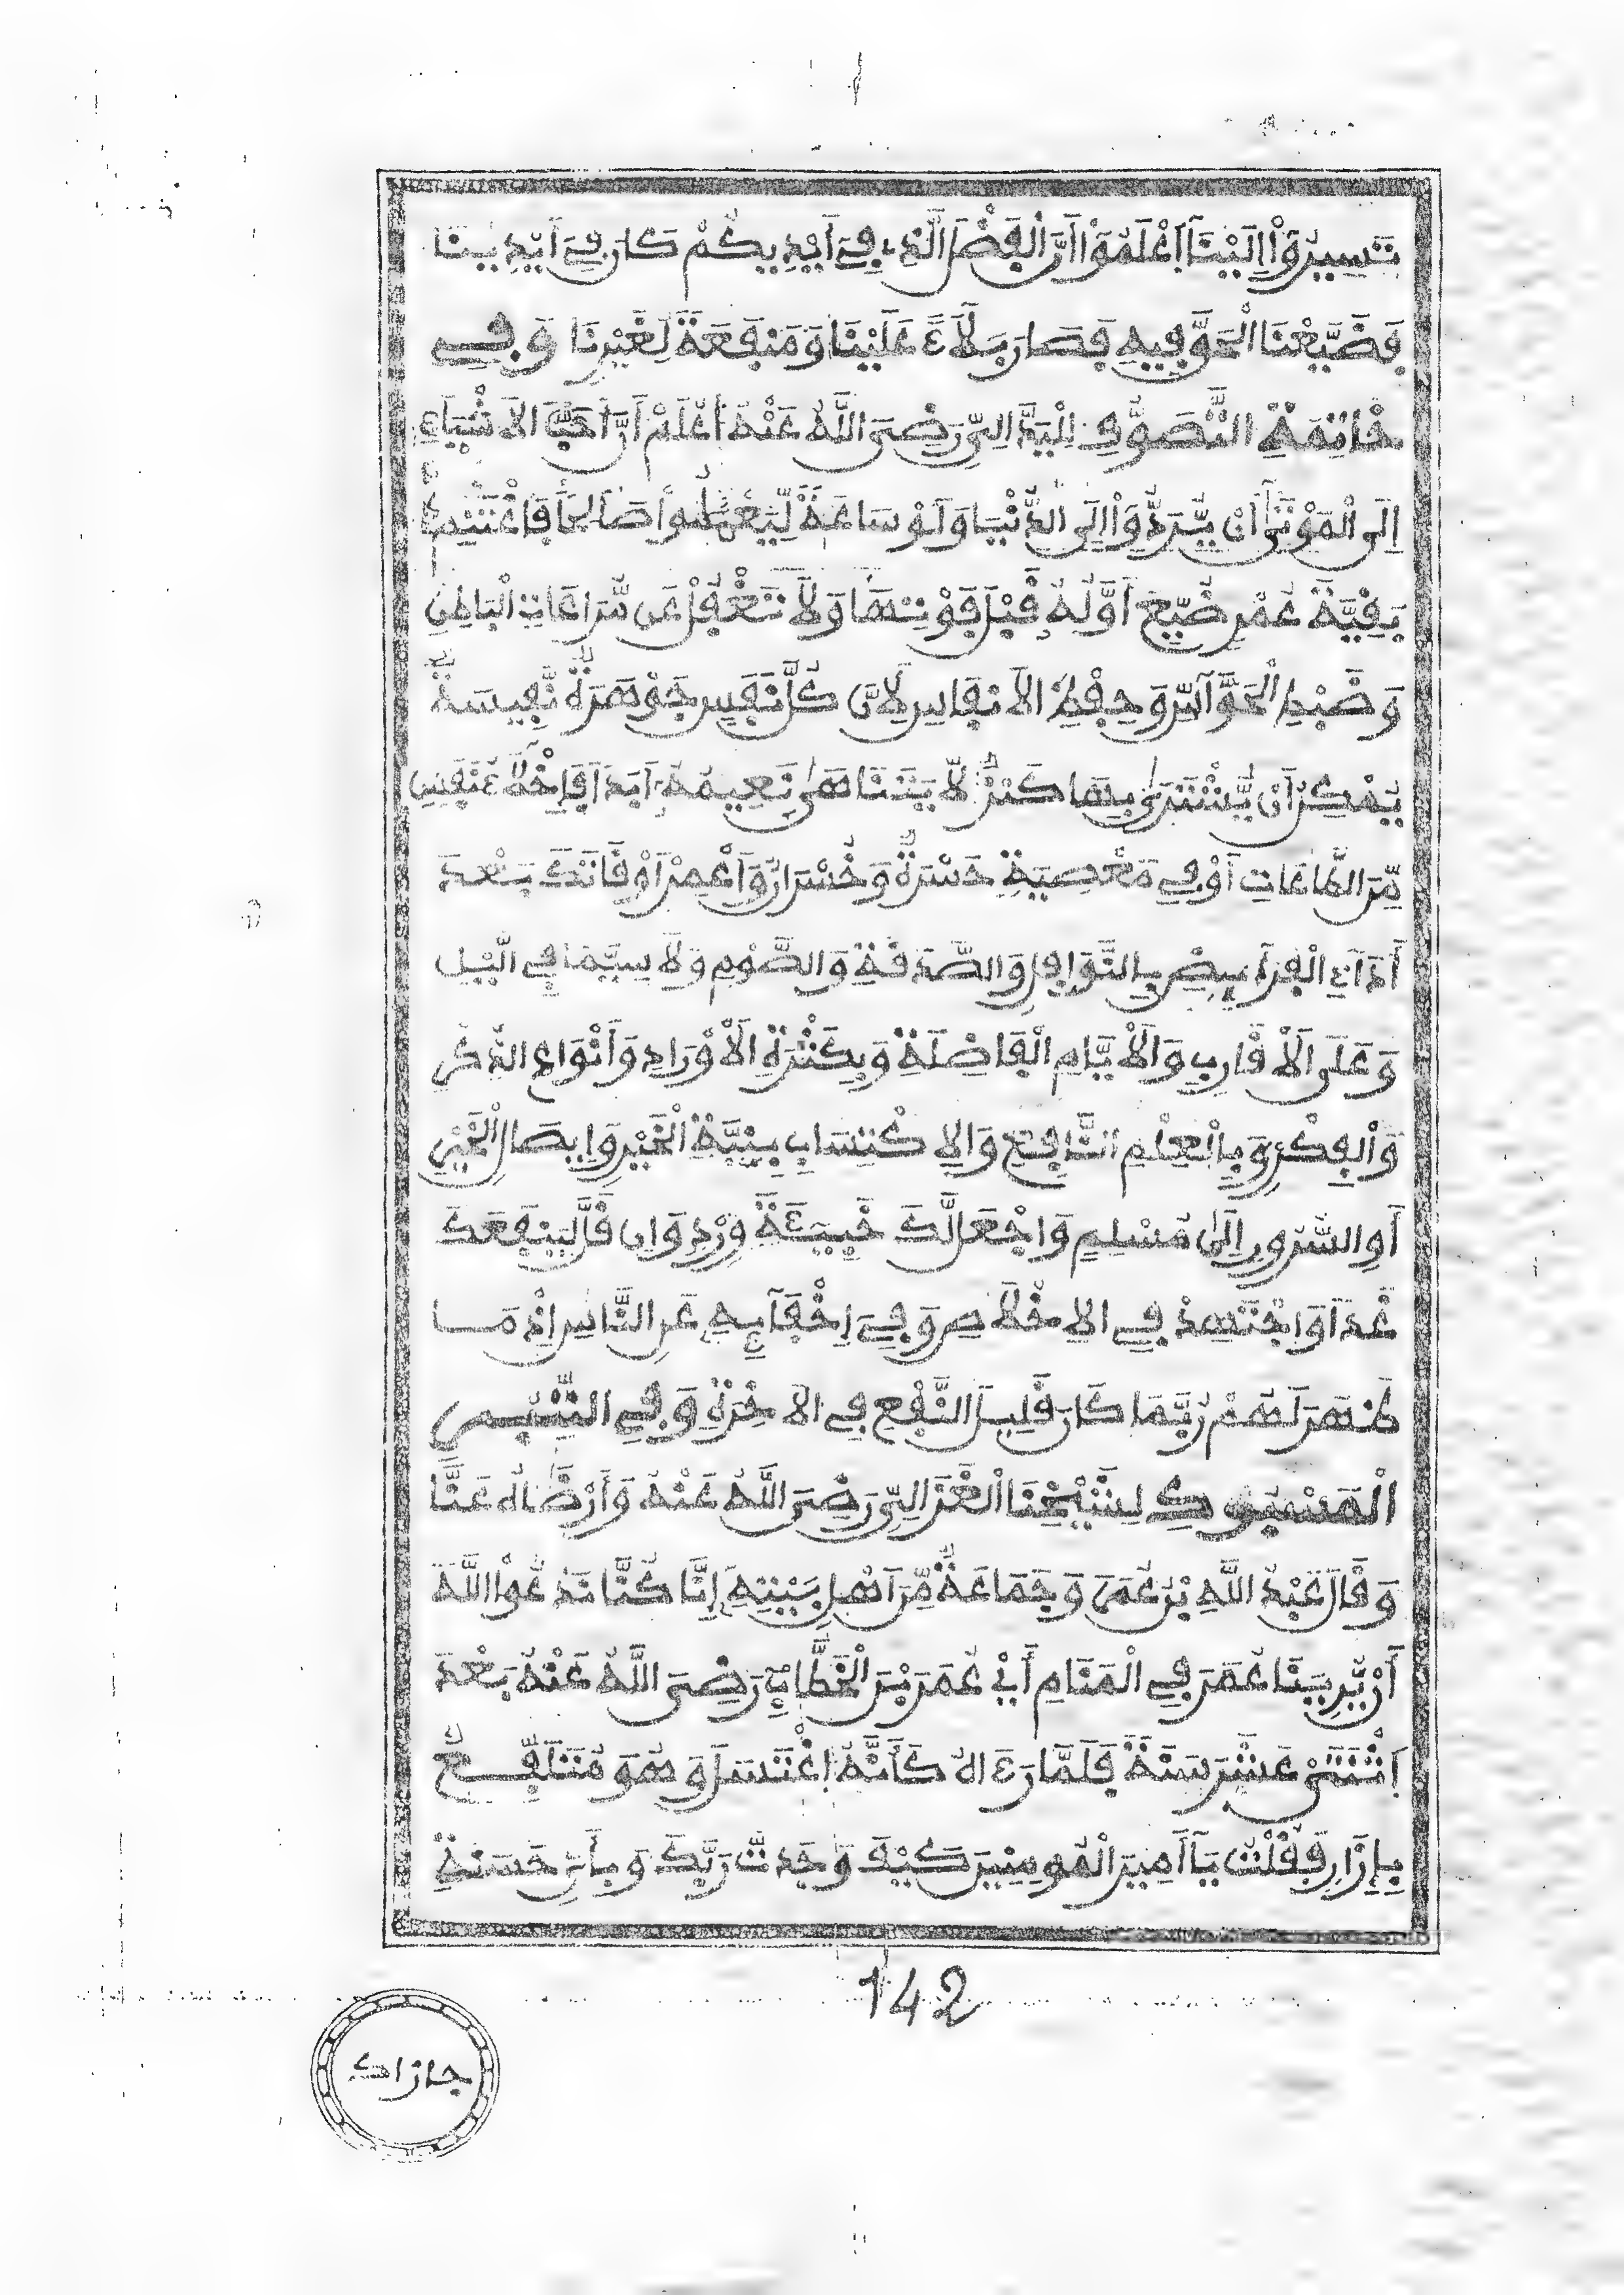 تَسِيرُوٓاْ إِلَيْنَآ اِعْلَمُوٓاْ أَنَّ الْفَضْلَ الَّذِے فِےٓ أَيْدِيكُمْ كَانَ فِےٓ أَيْدِينَا
فَضَيَّعْنَا الْحَقَّ فِيهِ فَصَارَ بَلَآءً عَلَيْنَا وَمَنْفَعَةً لِّغَيْرِنَا وَفِے
خَاتِمَةِ التَّصَوُّفِ لِلْيَدَّالِيِّ رَضِىَ اللَّهُ عَنْهُ اُعْلَمْ أَنَّ أَحَبَّ الاَشْيَآءِ
إِلَى الْمَوْتَىٰٓ أَنْ يُّرَدُّوٓاْ إِلَى الدُّنْيَا وَلَوْ سَاعَةً لِّيَعْمَلُواْ صَالِحًا فَاغْتَنِمْ
بَقِيَّةَ عُمْرٍ ضُيِّعَ أَوَّلُهُ قَبْلَ فَوْتِهَا وَلاَ تَغْفُلْ عَن مُّرَاعَاتِ الْبَاطِنِ
وَضَبْطِ الْحَوَآسِّ وَحِفْظِ الاَنْفَاسِ لِأَنَّ كُلَّ نَفَسٍ جَوْهَرَةٌ نَّفِيسَةٌ
يُمْكِنُ أَن يُّشْتَرَىٰ بِهَا كَنْزٌ لاَّ يَتَنَاهَىٰ نَعِيمُهُ أَبَدًا فَإِخْلَآءُ نَفَسٍ
مِّنَ الطَّاعَاتِ أَوْ فِے مَعْصِيَةٍ حَسْرَةٌ وَخُسْرَانٌ وَاَعْمِرْ أَوْقَاتَكَ بَعْدَ
أَدَآءِ الْفَرَآئِضِ بِالنَّوَافِلِ وَالصَّدَقَةِ وَالصَّوْمِ وَلاَ سِيَّمَا فِے الَّيْلِ
وَعَلَى الْأَقَارِبِ وَالْأَيَّامِ الْفَاضِلَةِ وَبِكَثْرَةِ الْأَوْرَادِ وَأَنْوَاعِ الذِّكْرِ
وَالْفِكْرِ وَبِالْعِلْمِ النَّافِعِ وَالِاكْتِسَابِ بِنِيَّةِ الْخَيْرِ وَإِيصَالِ الْخَيْرِ
أَوِ السُّرُورِ إِلَىٰ مُسْلِمٍ وَاجْعَل لَّكَ خَبِيئَةَ وِرْدٍ وَإِن قَلَّ يَنْفَعَكَ
غَدًا وَاجْتَهِدْ فِے الِاخْلَاصِ وَفِےٓ إِخْفَآئِهِ عَنِ النَّاسِ إِذْ مَا
ظَهَرَ لَهُمْ رُبَّمَا كَانَ قَلِيلَ النَّفْعِ فِے الاَخِرَةِ وَفِے التِّبْرِ
الْمَسْبُوكِ لِشَيْخِنَا الْغَزَالِيِّ رَضِىَ اللَّهُ عَنْهُ وَأَرْضَاهُ عَنَّا
وَقَالَ عَبْدُ اللَّهِ بْنُ عُمَرَ وَجَمَاعَةٌ مِّنَ اَهْلِ بَيْتِهِ إِنَّا كُنَّا نَدْعُواْ اللَّهَ
أَنْ يُّرِيَنَا عُمَرَ فِے الْمَنَامِ أَيْ عُمَرَ بْنَ الْخَطَّابِ رَضِىَ اللَّهُ عَنْهُ بَعْدَ
اِثْنَتَىْ عَشْرَ سَنَةً فَلَمَّا رَءَاهُ كَأَنَّهُ اغْتَسَلَ وَهُوَ مُتَلَفِّعٌ
بِإِزَارٍ فَقُلْتُ يَآ أَمِيرَ الْمُومِنِينَ كَيْفَ وَجَدتَّ رَبَّكَ وَبِأَيِّ حَسَنَةٍ
142
جازاك